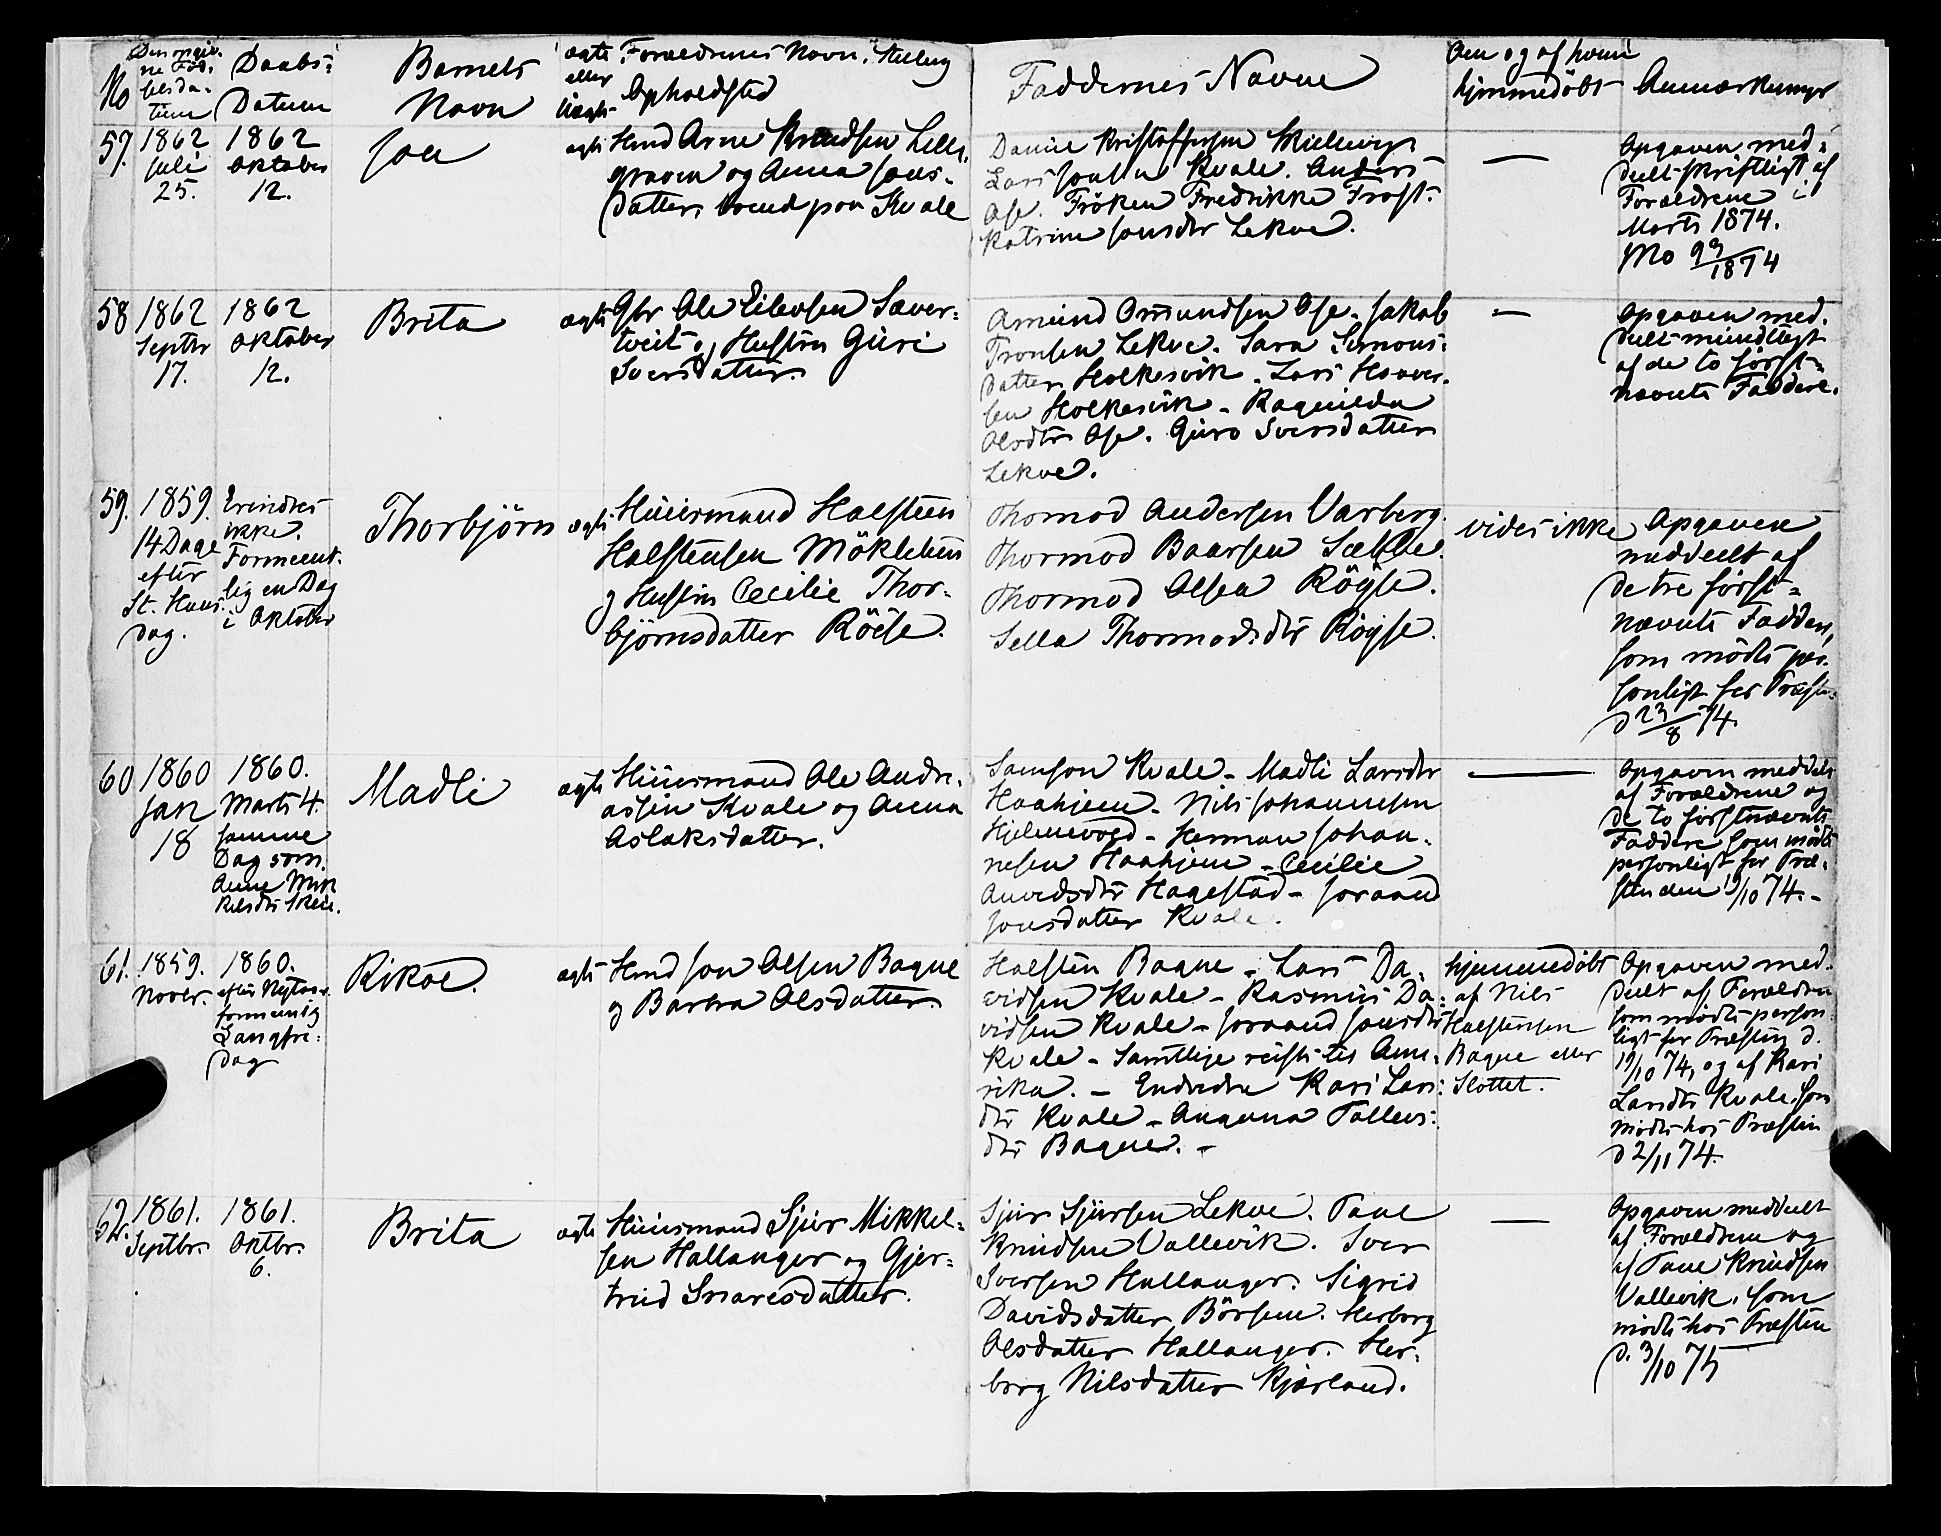 No
Den ongiv-
ne Fød-
selsda-
tum
Daabs-
Datum
Barnets
Navn
ægte
eller
Uægte
Forældrenes Navn, Stilling
Opholdsted
Faddernes Navne
Om og af hvem
hjemmedøbt
Anmærkninger
57.
1862
Juli
25.
1862
Oktober
12.
Jon
ægte
Hmd Arne Knudsen Lille-
graven og Anna Jons-
datter, boend paa Kvale
Daniel Kristoffersen Skielvigs
Lars Jonsen Kvale. Anders
Ose. Frøken Fredrikke Frost.
Katrine Jonsdtr Lekve.
—
Opgaven med-
deelt skriftligt af
Forældrene i
Marts 1874.
Mo 1874
58
1862
Septbr
17.
1862
Oktober
12.
Brita
ægte
Gbr Ole Eilevsen Sæver-
tveit og Hustru Guri
Sversdatter.
Amund Omundsen Ose. Jakob
Tronsen Lekve. Sara Simons-
datter Holkesvik. Lars Haaver-
sen Holkesvik - Ragnilda
Olsdtr Ose. Guro Sversdatter
Lekve.
—
Opgaven med-
delt mundtligt
af de to først-
nævnte Faddere.
59.
1859.
14 Dage
efter
St. Hans-
dag.
Erindres
ikke.
Formeent-
lig en Dag
i Oktober
Thorbjörn
ægte
Huusmand Halsteen
Halstensen Möklehuus
og Hustru Cecilie Thor-
björnsdatter Röise.
Thormod Andersen Varberg.
Thormod Baarsen Sæbbe.
Thormod Olsen Röyse.
Sella Thormodsdtr Röyse.
vides ikke
Opgaven
meddeelt af
de tre først-
nævnte Faddere,
som mødte per-
sonligt for Præsten
d 23/8 74.
60
1860
Jan
18
1860.
Marts 4.
samme
Dag som
Anne Mik-
kelsdtr Skeie.
Madli
ægte
Huusmand Ole Andre-
assen Kvale og Anna
Aslaksdatter.
Samson Kvale - Madli Larsdtr
Haahjem. Nils Johannesen
Hjelmevold - Herman Johan-
nesen Haahjem - Cecilie
Amundsdtr Hagestad - Joraand
Jonsdatter Kvale.
—
Opgaven meddelt
af Forældrene og
de to førstnævnte
Faddere som mødte
personligt for Præ-
sten den 19/10 74.-
61.
1859.
Novbr.
1860.
efter Nytaar
formentlig
Langfre-
dag
Rikoe.
ægte
Hmd Jon Olsen Bagne
og Barbra Olsdatter
Halsten Bagne - Lars Da-
vidsen Kvale - Rasmus Da-
vidsen Kvale - Joraand Jonsdtr
Kvale - Samtlige reiste til Ame-
rika. - Endvidere Kari Lars-
dtr Kvale - Anganna Tollevs-
dtr Bagne. -
hjemmedøbt
af Nils
Halstensen
Bagne eller
Slottet.
Opgaven med-
deelt af Forældrene
som mødte person-
ligt for Præsten d.
19/10 74, og af Kari
Larsdtr Kvale, som
mødte hos Præsten
d 2/11 74.
62.
1861.
Septbr.
1861.
Oktbr.
6.
Brita
ægte
Huusmand Sjur Mikkel-
sen Hallanger og Gjer-
trud Snaresdatter.
Sjur Sjursen Lekve. Tane
Knudsen Vallevik. Sver
Sversen Hallanger. Sigrid
Davidsdatter Börsem. Herborg
Olsdatter Hallanger. Her-
borg Nilsdatter Kjærland.
—
Opgaven meddeelt
af Forældrene og
af Tane Knudsen
Vallevik, som
mødte hos Præsten
d. 3/10 75